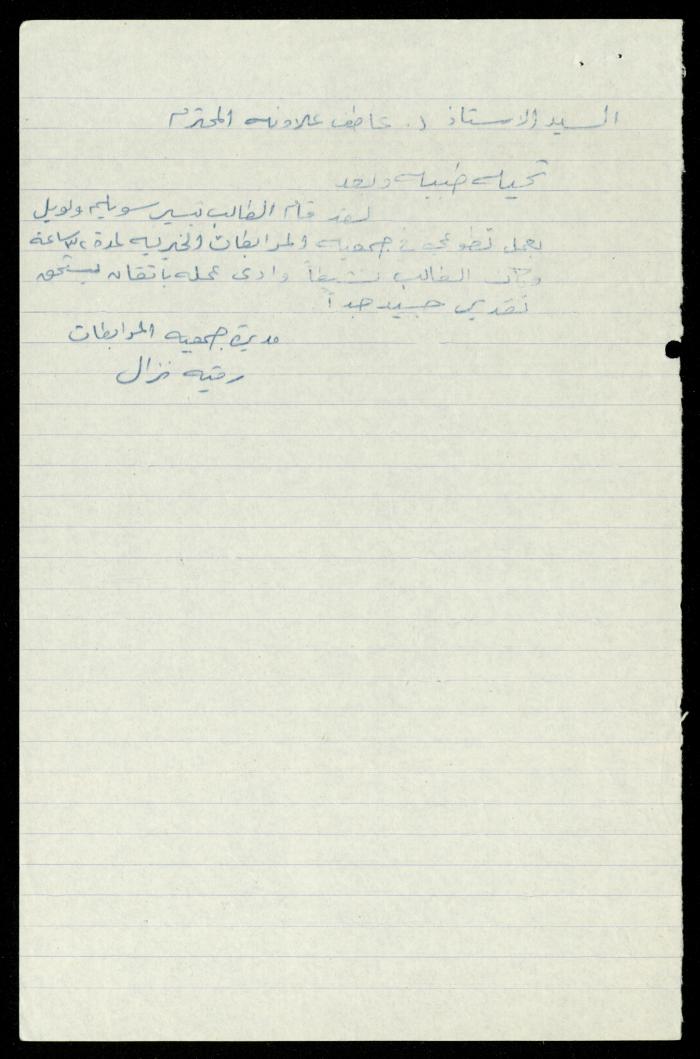 السيد الاستاذ د. عاطف علاونه المحترم
تحيه طيبه وبعد
لقد قام الطالب تيسير سويلم
بعمل تطوعي في جمعيه المرابطات الخيريه لمدة ساعة
وكان الطالب نشيطاً وادى عمله باتقان يستحق
تقدير جيد جداً
مديرة جمعيه المرابطات
رقيه نزال